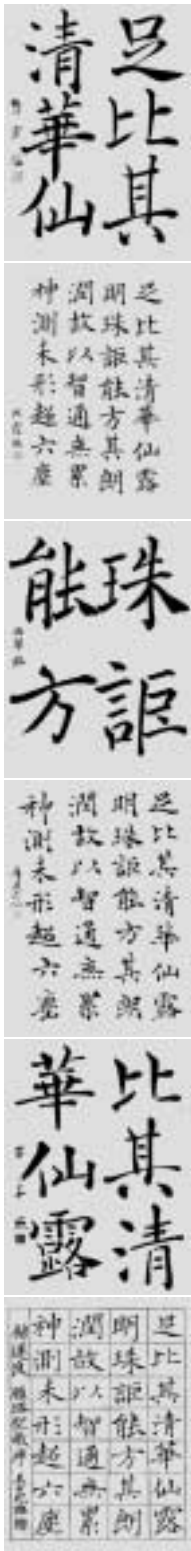 足比其
清華仙
足比其清華仙露
明珠詎能方其朗
潤故以智通無累
神測未形超六塵
珠詎
能方
足比其清華仙露
明珠詎能方其朗
潤故以智通無累
神測未形超六塵
比其清
華仙露
足比其清華仙露
明珠詎能方其朗
潤故以智通無累
神測未形超六塵